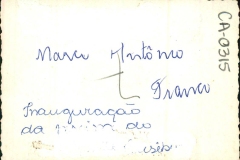 Marco Antônio
Franco
Inauguração
da do
CA-0315